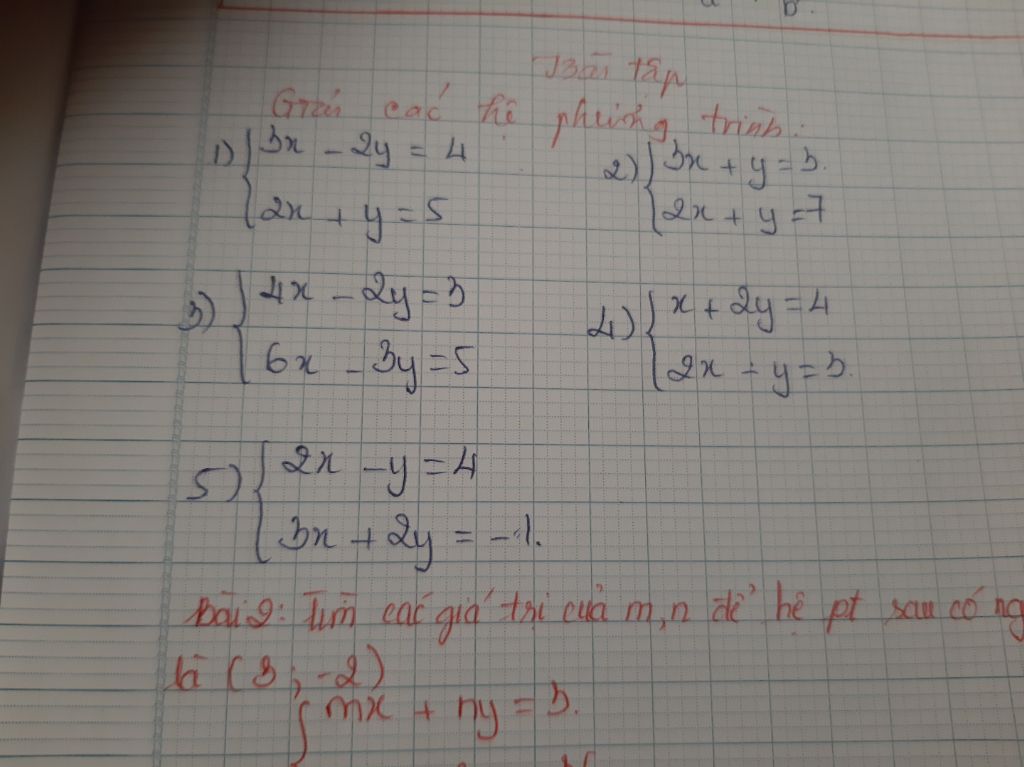 Bài tập
Giải các hệ phương trình:
1) { 3x - 2y = 4
2x + y = 5
2) { 3x + y = 3.
2x + y = 7
3) { 4x - 2y = 3
6x - 3y = 5
4) { x + 2y = 4
2x - y = 3.
5) { 2x - y = 4
3x + 2y = -1.
Bài 2: Tìm các giá trị của m, n để hệ pt sau có ng
là (3; -2)
{ mx + ny = 3.